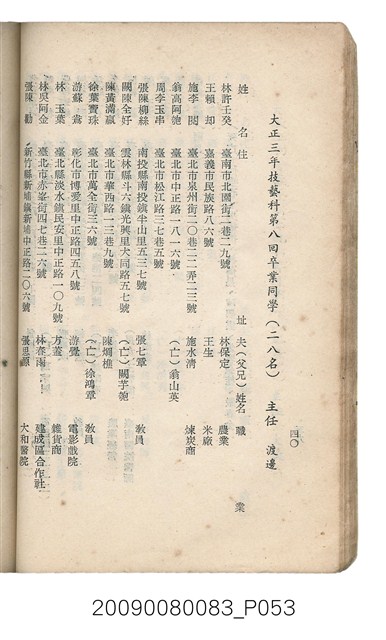 大正三年技藝科第八回卒業同學(二八名) 主任 渡邊
四〇
姓名 住址 夫(父兄)姓名 職業
林許壬癸 臺南市北園街一巷二九號 林保定 農業
王賴却 嘉義市民族路八六號 王生 米廠
施李閃 臺北市泉州街二〇巷二二弄二三號 施水清 煉炭商
翁高阿 臺北市中正路一八一六號 (亡)翁山英
周李玉串 臺北市松江路三七巷五號
張陳柳絲 南投縣南投鎮半山里五三七號 張七 教員
關陳全好 雲林縣斗六鎮光興里大同路五七號 (亡)關芋
陳黃滿嬴 臺北市華西路一三巷九號 陳烱樵
徐葉寶珠 臺北市萬全街三六號 (亡)徐鴻章 教員
游蘇盞 彰化市博愛里中正路四五八號 游疊 電影戲院
林玉葉 臺北縣淡水鎮民安里中正路一〇九號 方蓋 雜貨商
林吳阿金 臺北市赤峯街四七巷二六號 林春 建成區合作社
張陳勸 新竹縣新埔鎮新埔中正路二〇六號 張思源 大和醫院
20090080083_P053